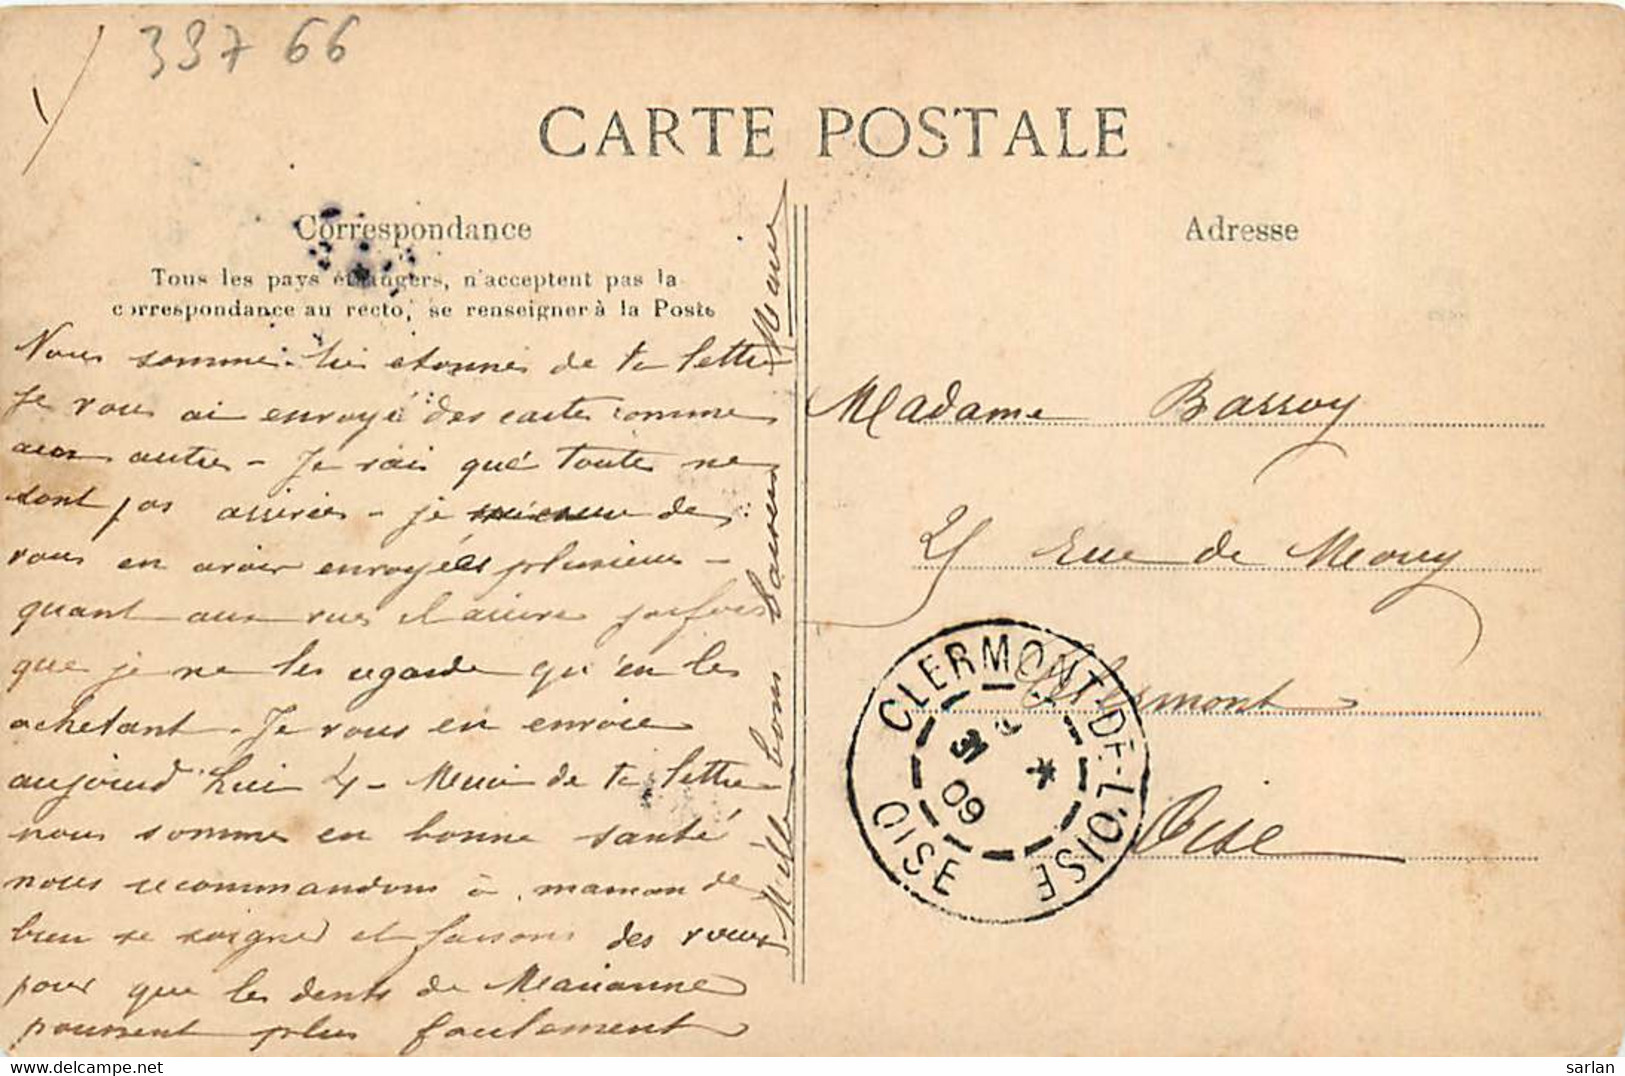 39766
CARTE POSTALE
Correspondance
Tous les pays étrangers, n'acceptent pas la
correspondance au recto, se renseigner à la Poste
Nous somme très etonnés de ta lettre
Je vous ai envoyé des carte comme
aux autres - Je vais que toutes ne
sont pas arrivées - je de
vous en avoir envoyées plusieurs -
quant aux vues il arrive parfois
que je ne les regarde qu'en les
achetant. Je vous en envoie
aujourd'hui 4 - Merci de ta lettre
nous sommes en bonne santé -
nous recommandons à maman de
bien se soigner et faisons des vœux
pour que les dents de Marianne
poussent plus facilement
Mille bons baisers Marie
Adresse
Madame Bassoy
25 Rue de Mouy
Clermont
Oise
CLERMONT-DE-L'OISE
OISE
31
09
sarlan